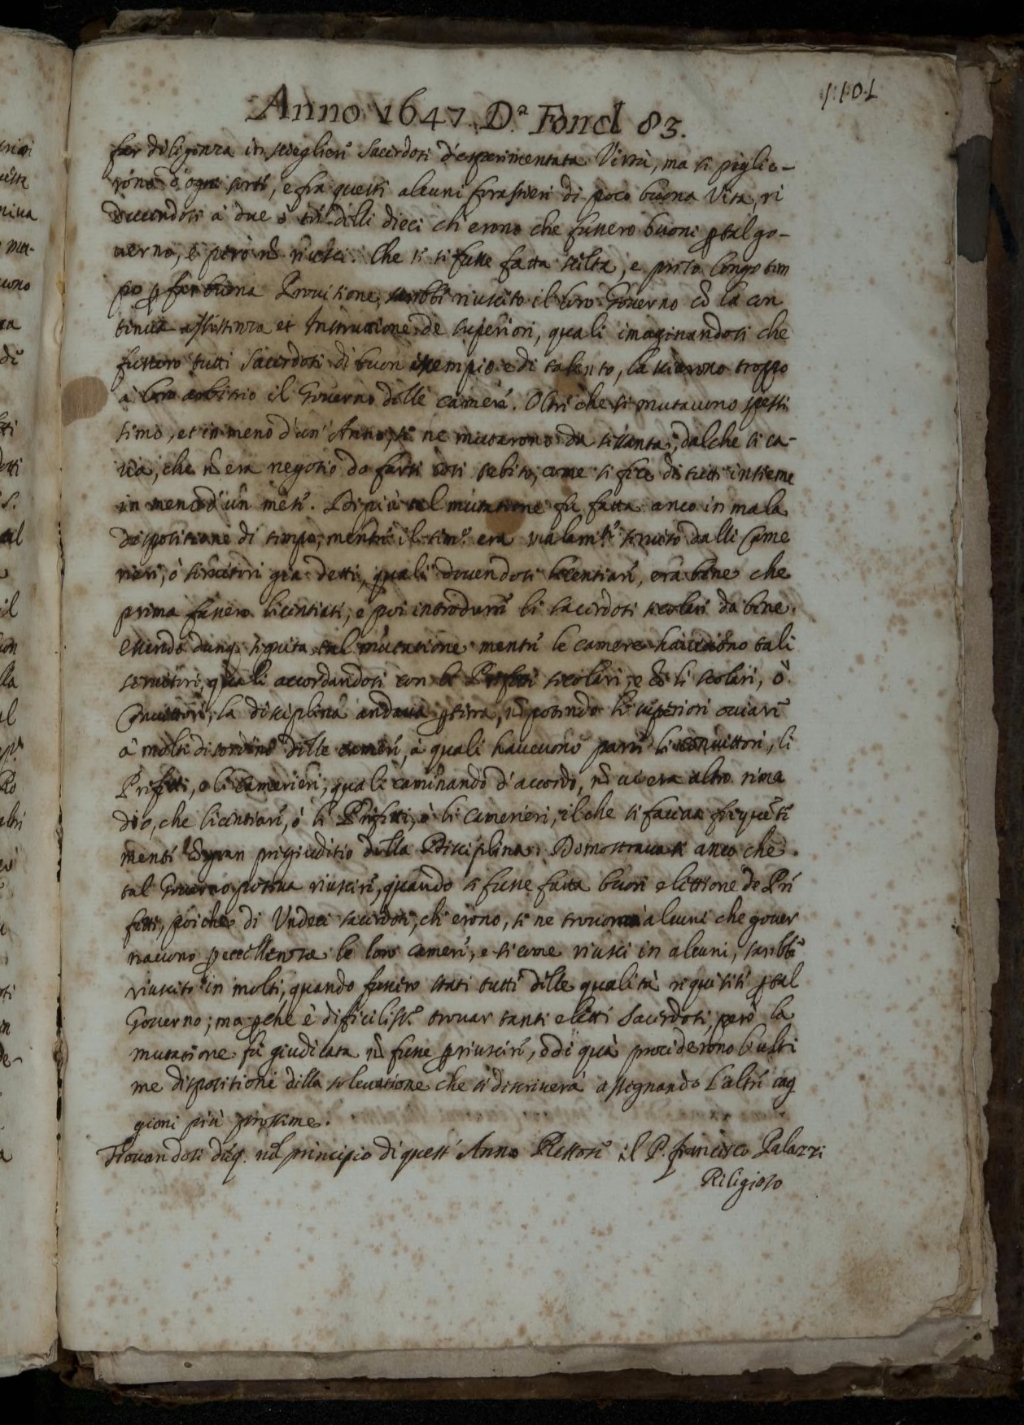 1101
Anno 1647 D.ª Fond 83.
far diligenza in sciegliere Sacerdoti d'esperimentata Virtù, ma si piglio-
rono d'ogni sorte, e fra questi alcuni forastieri di poco buona Vita, ri
ducendosi à due ò tre delli dieci ch'erono che fussero buoni p tal go-
uerno, e però nõ riuscì. Che se si fusse fatta scelta, e preso longo tem
po p far buona Prouisione, sarebbe riuscito il loro Gouerno cõ la con
tinua assistenza et Instruzione de superiori, quali imaginandosi che
fussero tutti Sacerdoti di buon essempio e di talento, lasciarono troppo
à loro arbitrio il Gouerno delle camere. Oltre che si mutauono spessi
simo, et in meno d'un Anno, se ne mutarono da sessanta, dal che si ca-
uia, che nõ era negotio da farsi così subito, come si fece di tutti insieme
in meno d'un mese. Di più tal mutatione fu fatta anco in mala
dispositione di tempo, mentre il sem.º era malam.te seruito dalli Came
rieri, ò seruitori già detti, quali douendosi licentiare, era bene che
prima fussero licentiati, e poi introdurre li sacerdoti secolari da bene.
Essendo dunq. seguita tal mutatione mentre le camere haueuono tali
seruitori, quali accordandosi con li Prefetti secolari, e cõ li scolari, ò
Conuittori, la disciplina andaua p terra, nõ potendo li superiori ouiare
à molti disordini delle camere, à quali haueuono parte li conuittori, li
Prefetti, e li camerieri, quali caminando d'accordo, nõ ui era altro rime
dio, che licentiare, ò li Prefetti, ò li Camerieri, il che si faceua frequẽte
mente cõ gran pregiuditio della Disciplina. Demostraua si anco che
tal Gouerno poteua riuscire, quando si fusse fatta buon elettione de Pre
fetti, poiche di Vndeci sacerdoti, ch'erono, se ne trouorno alcuni che gouer
nauono p eccellenza le loro camere, e si come riuscì in alcuni, sarebbe
riuscito in molti, quando fussero stati tutti delle qualità requisiti p tal
Gouerno; ma pche è dificiliss.º trouar tanti eletti Sacerdoti, però la
mutatione fu giudicata nõ fusse p riuscire, e di quà procederono l'ulti
me dispositioni della solleuatione che si descriuerà assegnando l'altre cag
gioni più prossime.
Trouandosi duq. nel principio di quest'Anno Rettore il P. Francesco Palazzi
Religioso